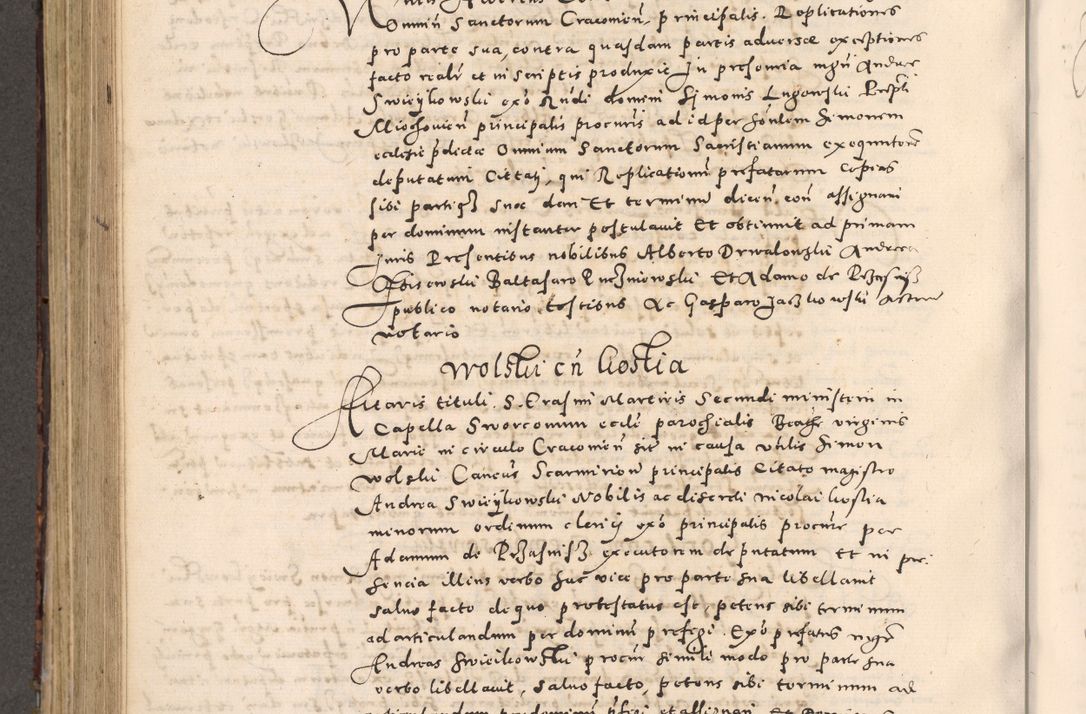 Omniũ Sanctorum Cracovieñ. principalis. Replicationes
pro parte sua, contra quasdam partis adversæ exceptiones
facto realr̃ et in scriptis produxit In presentia mgr̃i Andreæ
Swieykowski exõ Nudi domini Simonis Lugowski Prepti
Miechovieñ principalis procurĩs ad id per hõnlem Simonem
ecclesie p̃dictæ Omnium Sanctorum Sacristianum exequutorẽ
deputatum Citati, qui Replicationũ prefatarum Copias
sibi partiqz suæ dari Et terminũ diceñ. coñ assignari
per dominum instanter postulavit Et obtinuit ad primam
Juris Presentibus nobilibus Alberto Drwalowski Andrea
Baltasaro Et Adamo de Przasnisz
publico notario testibus Ac Gasparo Jaczkowski actorũ
notario
Wolski cñ Kostia
Altaris tituli. S. Erasmi Martiris Secundi ministerii in
Capella Sworcorum eccłe parochialis Beatæ virginis
Mariæ in circulo Cracovieñ sit̃ in causa utilis Simon
Wolski Principalis Citato magistro
Andrea Swieykowski Nobilis ac discreti Nicolai Kostia
minorum ordinum clerici exõ principalis procurẽ per
Adamum de Przasnisz executorem deputatum Et in pre
sencia illius verbo huc vice pro parte sua libellavit
salvo facto de quo protestatus est, petens sibi terminum
ad articulandum per dominũ prefigi. Exõ prefatus mgr̃
Andreas Swieikowski procur̃ simili modo pro parte sua
verbo libellavit, Salvo facto, petens sibi terminum ad